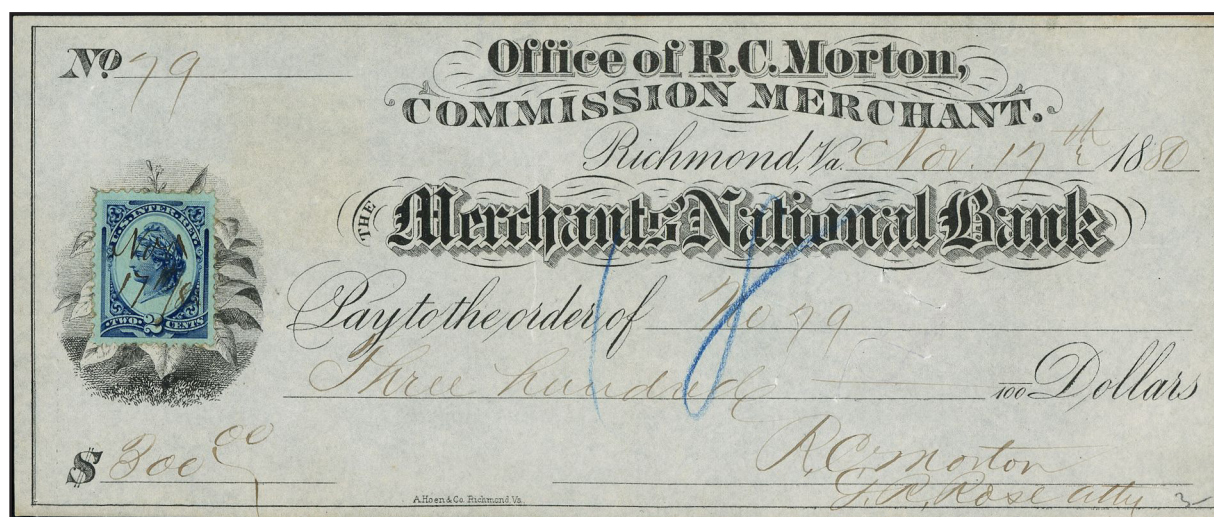 No 79
Office of R.C. Morton,
COMMISSION MERCHANT.
Richmond, Va. Nov. 17th 1880
THE Merchants' National Bank
U.S. INTER. REV.
17
TWO 2 CENTS
Pay to the order of No 79
18
Three hundred 100 Dollars
$ 300 00
R.C. Morton
J.R. Rose atty
A. Hoen & Co. Richmond, Va.